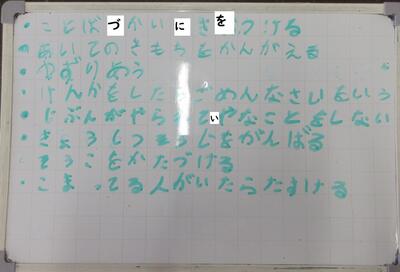 ことばづかいにきをつける
あいてのきもちをかんがえる
ゆずりあう
けんかをしたらごめんなさいをいう
じぶんがやられていやなことをしない
きょうしつそうじをがんばる
そうこをかたづける
こまってる人がいたらたすける